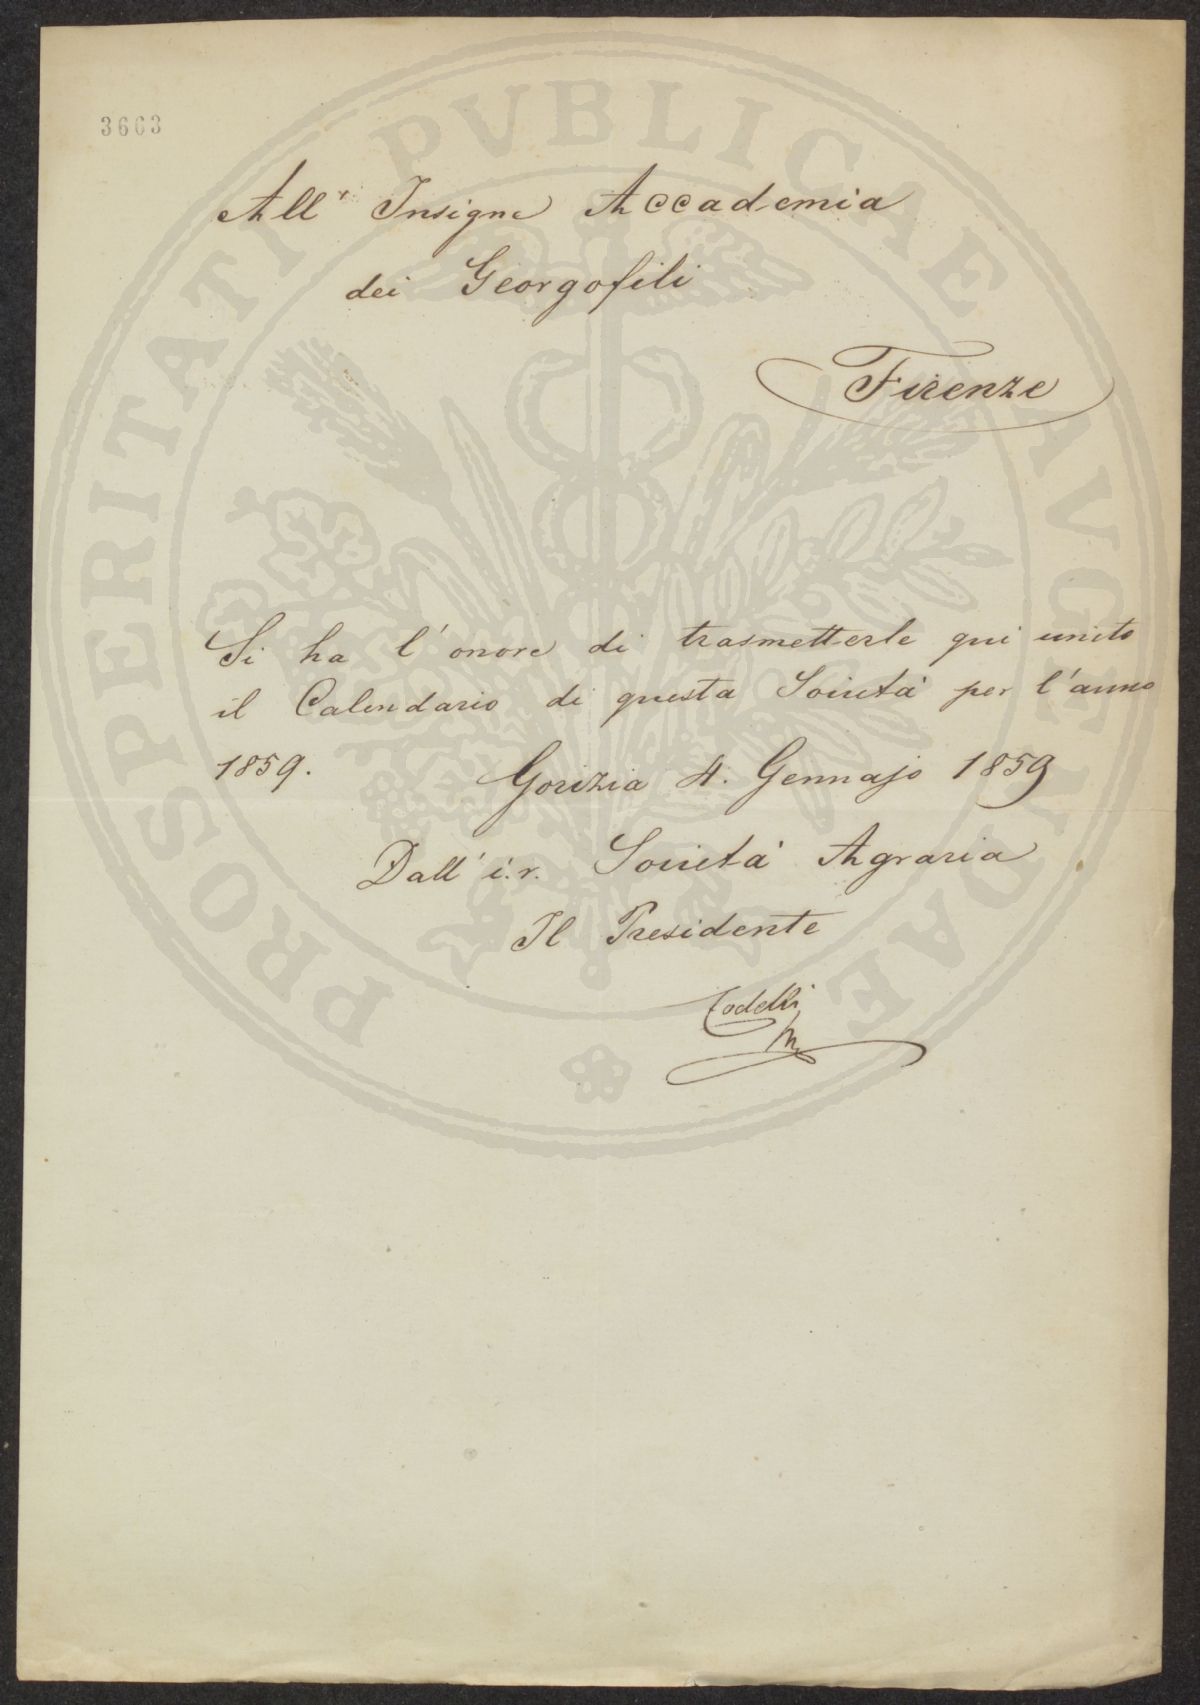 3663
All' Insigne Accademia
dei Georgofili
Firenze
Si ha l'onore di trasmetterle qui unito
il Calendario di questa Società per l'anno
1859.
Gorizia 4. Gennajo 1859
Dall' i.r. Società Agraria
Il Presidente
Codelli
PROSPERITATI PVBLICAE AVGENDAE